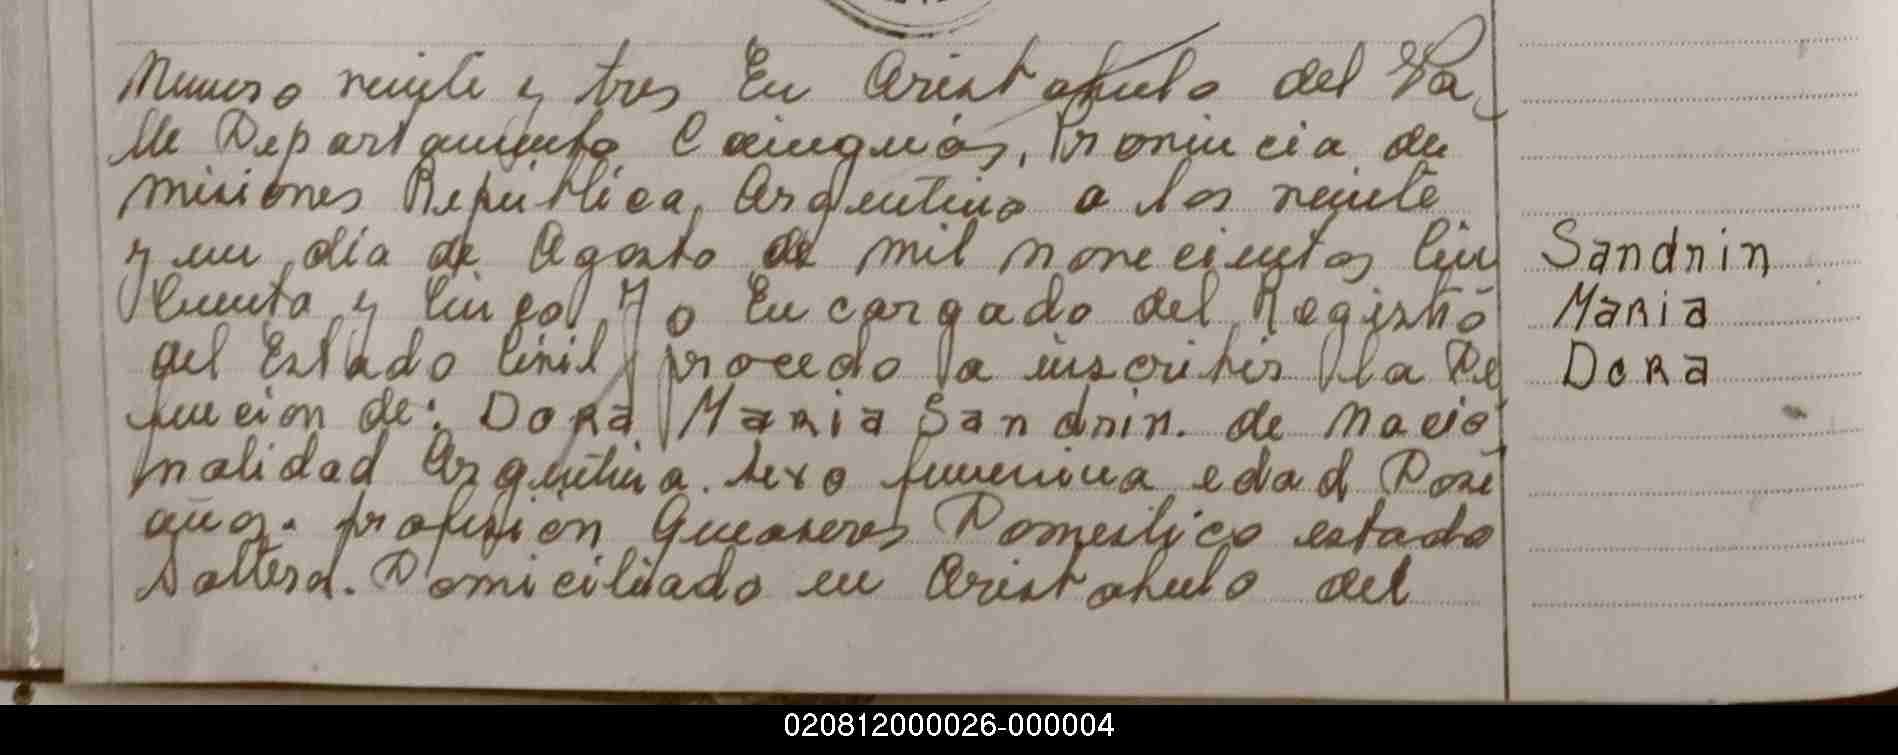 Numero veinte y tres En Aristobulo del Va
lle Departamento Cainguás, Provincia de
Misiones República, Argentina a los veinte
y un día de Agosto de mil novecientos Cin
Cuenta y Cinco, Yo Encargado del Registro
del Estado Civil procedo a inscribir la De
funcion de: Dora Maria Sandrin. de Nacio
nalidad Argentina. sexo femenina edad Doce
años. profesion Queaseres Domestico estado
Soltera. Domiciliado en Aristobulo del
Sandrin
Maria
Dora
020812000026-000004